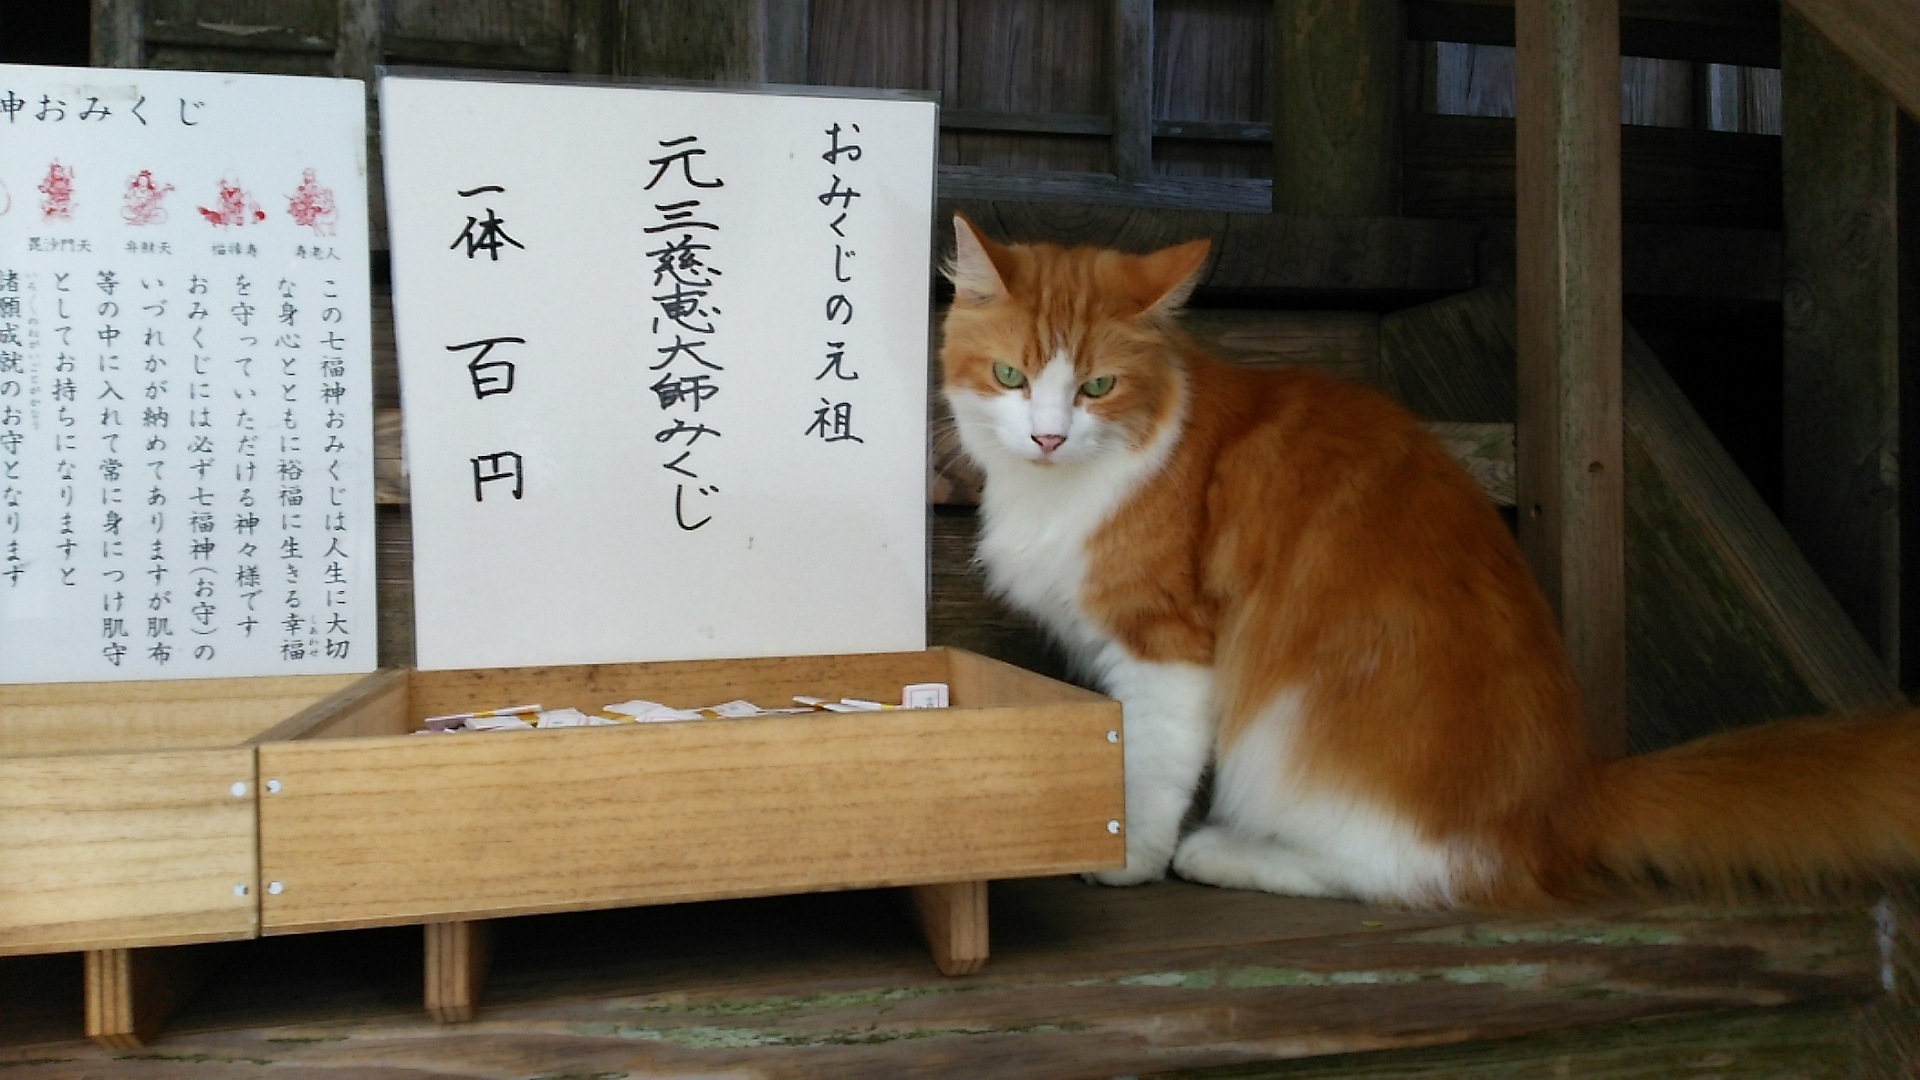 おみくじの元祖
元三慈恵大師みくじ
一体 百円
神おみくじ
寿老人
福禄寿
弁財天
毘沙門天
この七福神おみくじは人生に大切
な身心とともに裕福に生きる幸福
しあわせ
を守っていただける神々様です
おみくじには必ず七福神(お守)の
いづれかが納めてありますが肌布
等の中に入れて常に身につけ肌守
としてお持ちになりますと
諸願成就のお守となります